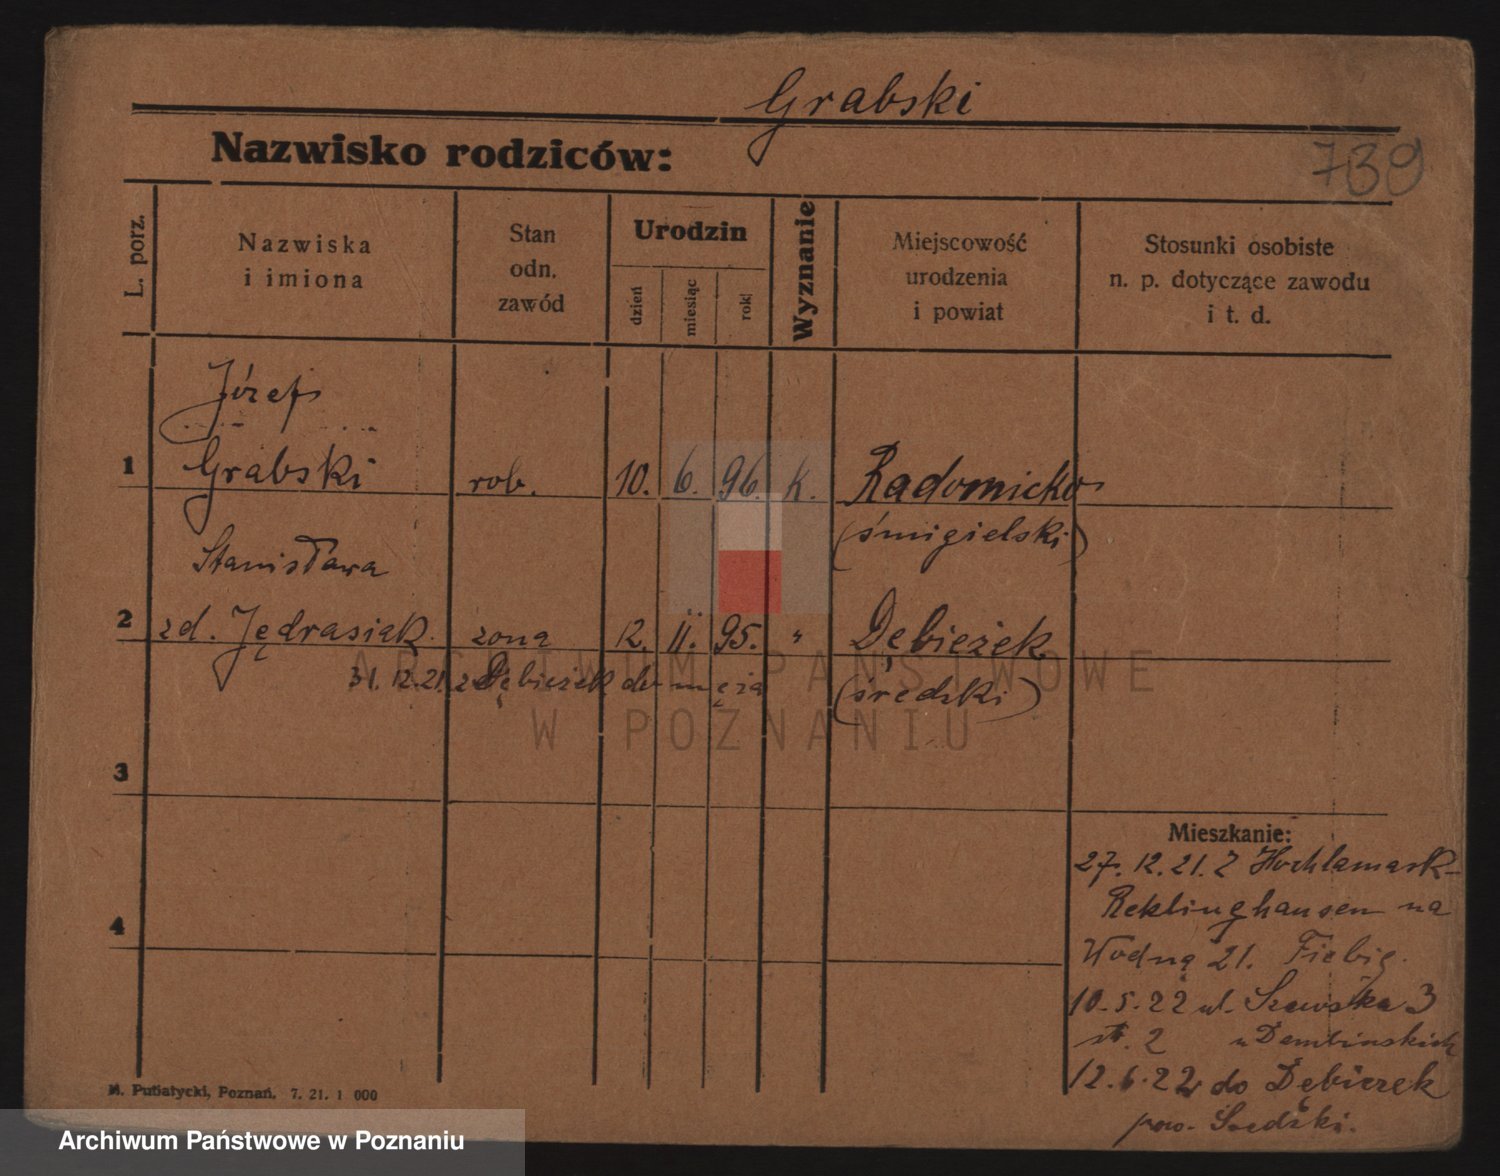 Grabski
Nazwisko rodziców:
739
L. porz.
Nazwiska
i imiona
Stan
odn.
zawód
Urodzin
dzień
miesiąc
rok
Wyznanie
Miejscowość
urodzenia
i powiat
Stosunki osobiste
n. p. dotyczące zawodu
i t. d.
Józef
1 Grabski rob. 10. 6. 96. k. Radomicko
(śmigielski)
Stanisława
2 zd. Jędrasiak żona 12. II. 95. " Dębieżek
31. 12. 21. z Dębieżek do męża (średzki)
3
4
Mieszkanie:
27. 12. 21. z Hochlamark-
Reklinghausen na
Wodną 21. Fiebig.
10. 5. 22 ul. Szewska 3
u Dembinskich
12. 6. 22 do Dębiczek
pow. Średzki.
M. Putiatycki, Poznań. 7. 21. 1 000
ARCHIWUM PAŃSTWOWE
W POZNANIU
Archiwum Państwowe w Poznaniu